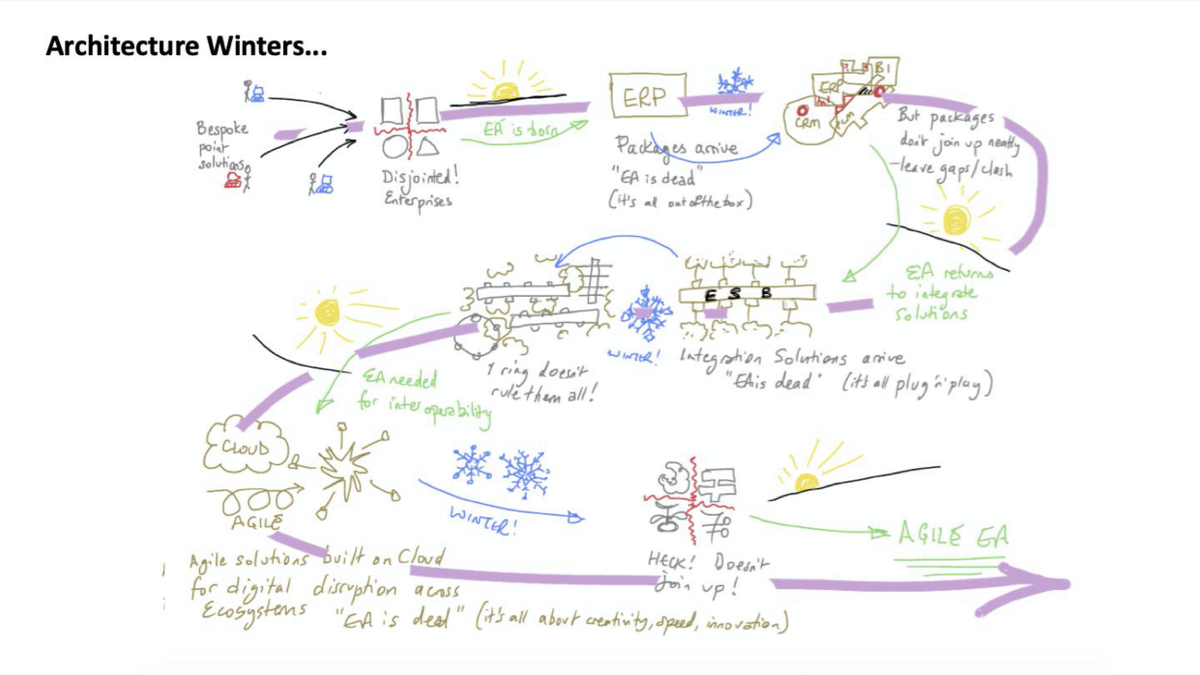 Architecture Winters...
Bespoke
point
solutions
Disjointed!
Enterprises
EA is born
ERP
Packages arrive
"EA is dead"
(it's all out of the box)
WINTER!
BI
ERP
CRM
But packages
don't join up neatly
-leave gaps/clash
EA returns
to integrate
solutions
E S B
Integration Solutions arrive
"EA is dead" (it's all plug 'n' play)
WINTER!
1 ring doesn't
rule them all!
EA needed
for interoperability
CLOUD
AGILE
Agile solutions built on Cloud
for digital disruption across
Ecosystems "EA is dead" (it's all about creativity, speed, innovation)
WINTER!
HECK! Doesn't
join up!
AGILE EA